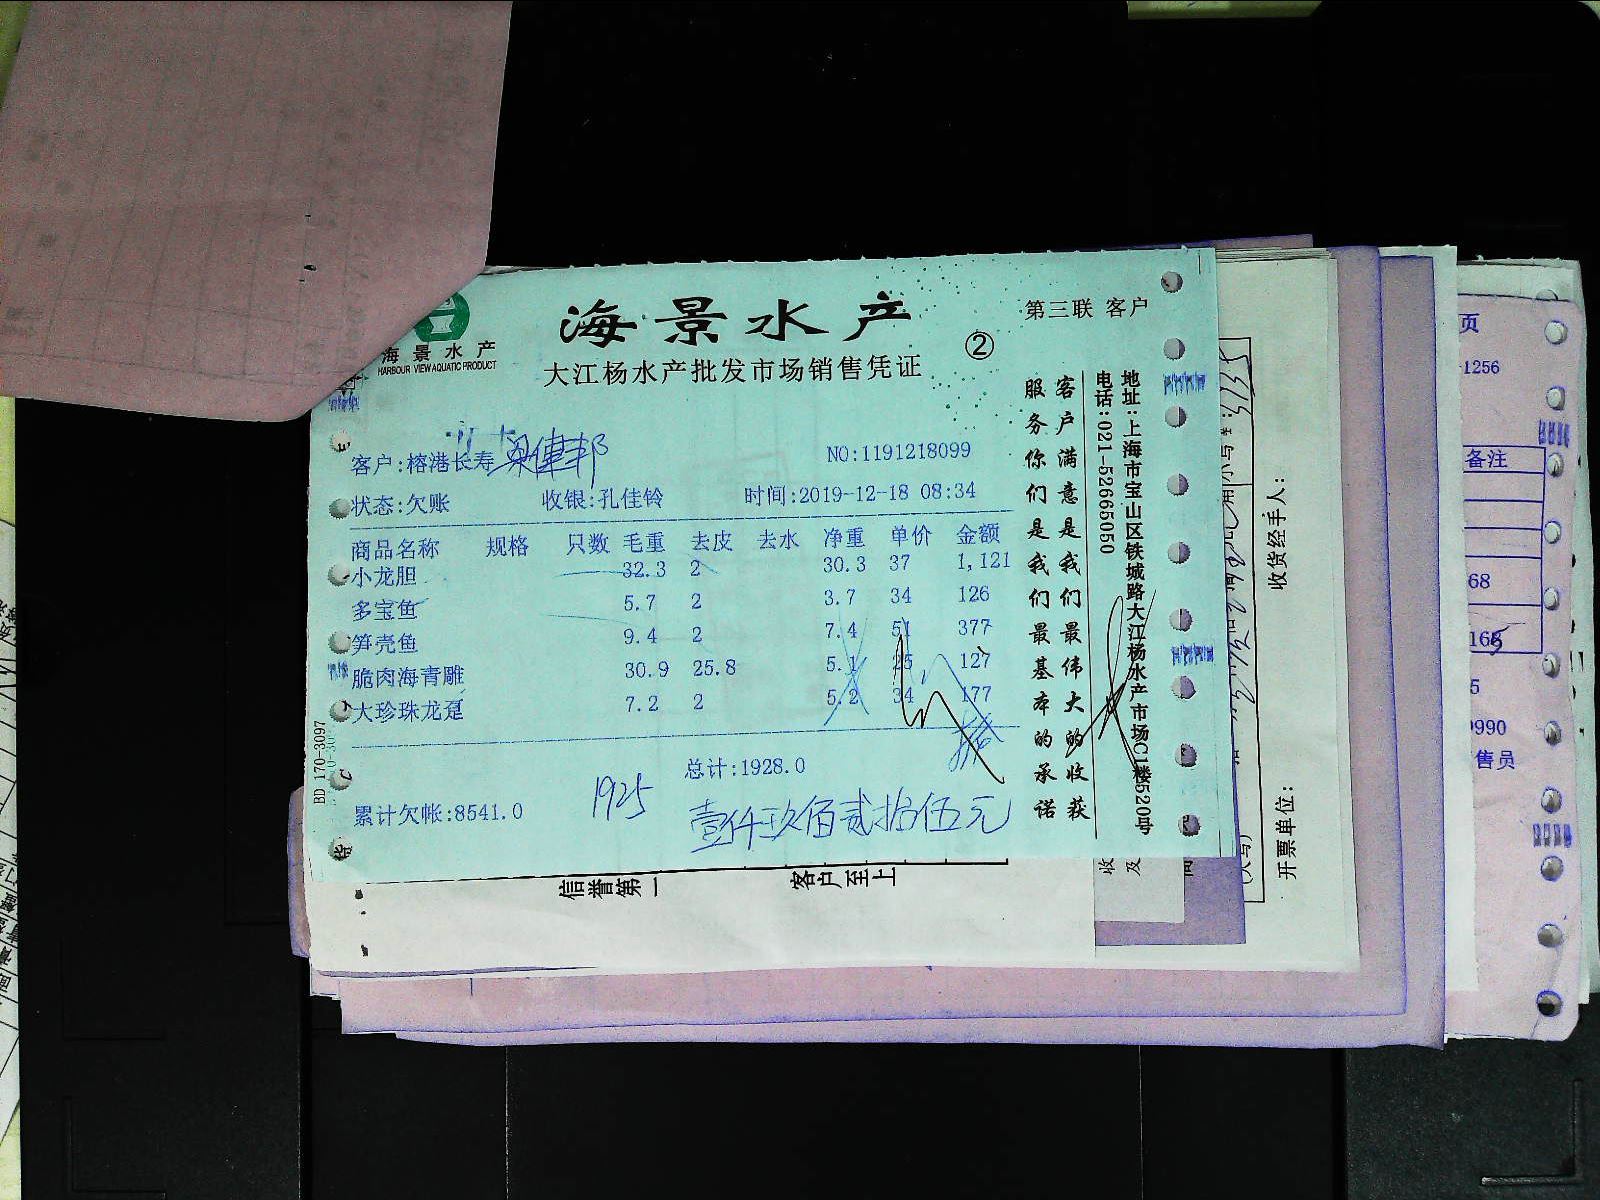 海景水产
HARBOUR VIEW AQUATIC PRODUCT
海景水产
大江杨水产批发市场销售凭证
②
第三联 客户
客户:榕港长寿
NO:1191218099
状态:欠账 收银:孔佳铃 时间:2019-12-18 08:34
商品名称 规格 只数 毛重 去皮 去水 净重 单价 金额
小龙胆 32.3 2 30.3 37 1,121
多宝鱼 5.7 2 3.7 34 126
笋壳鱼 9.4 2 7.4 51 377
脆肉海青雕 30.9 25.8 5.1 25 127
大珍珠龙趸 7.2 2 5.2 34 177
总计:1928.0
累计欠帐:8541.0
1925
壹仟玖佰贰拾伍元
客户满意是我们最伟大的收获
服务你们是我们最基本的承诺
地址:上海市宝山区铁城路大江杨水产市场C1楼520号
电话:021-52665050
BD 170-3097
信誉第一
客户至上
收货经手人:
开票单位:
页
-1256
备注
68
168
5
9990
售员